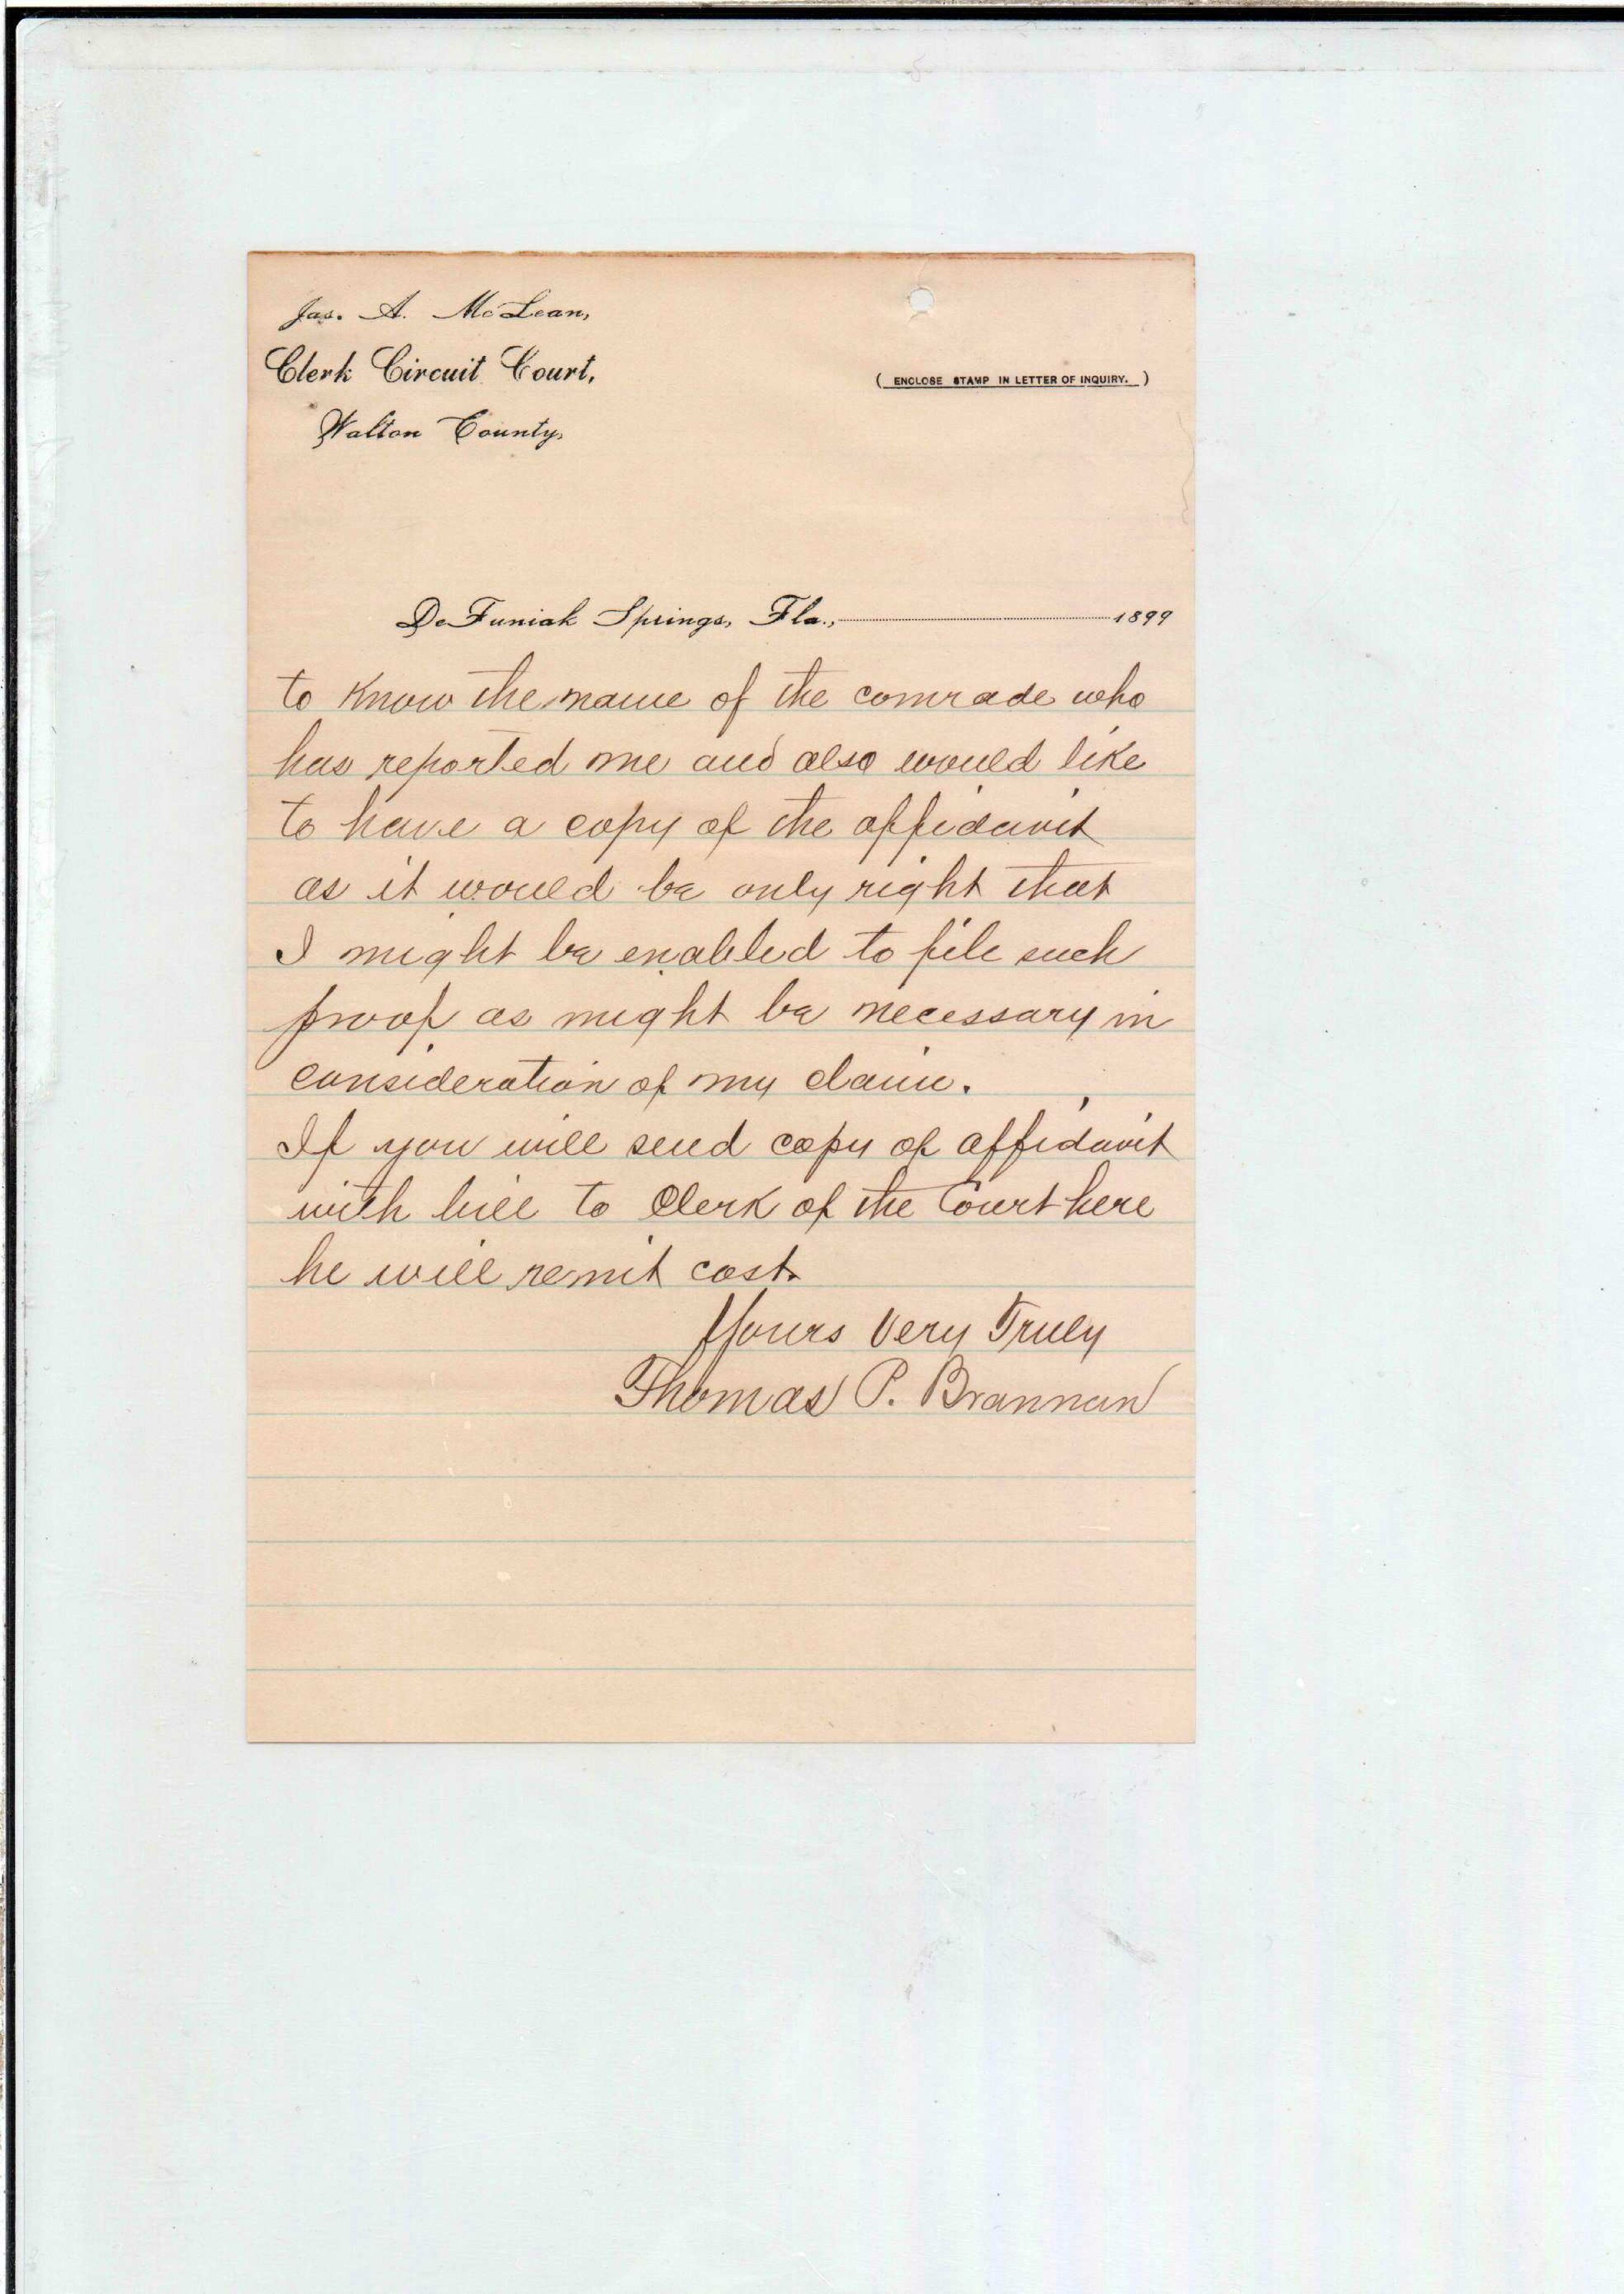 Jas. A. McLean,
Clerk Circuit Court,
(ENCLOSE STAMP IN LETTER OF INQUIRY.)
Walton County,
DeFuniak Springs, Fla., 1899
to know the name of the comrade who
has reported me and also would like
to have a copy of the affidavit
as it would be only right that
I might be enabled to file such
proof as might be necessary in
consideration of my claim.
If you will send copy of affidavit
with bill to Clerk of the Court here
he will remit cost.
Yours Very Truly
Thomas P. Brannan